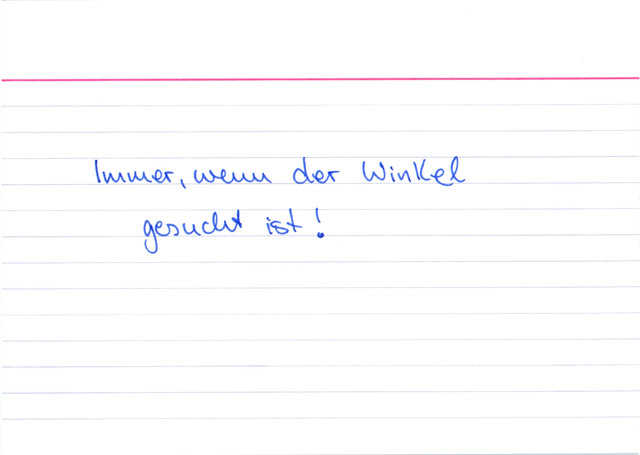 Immer, wenn der Winkel
gesucht ist!